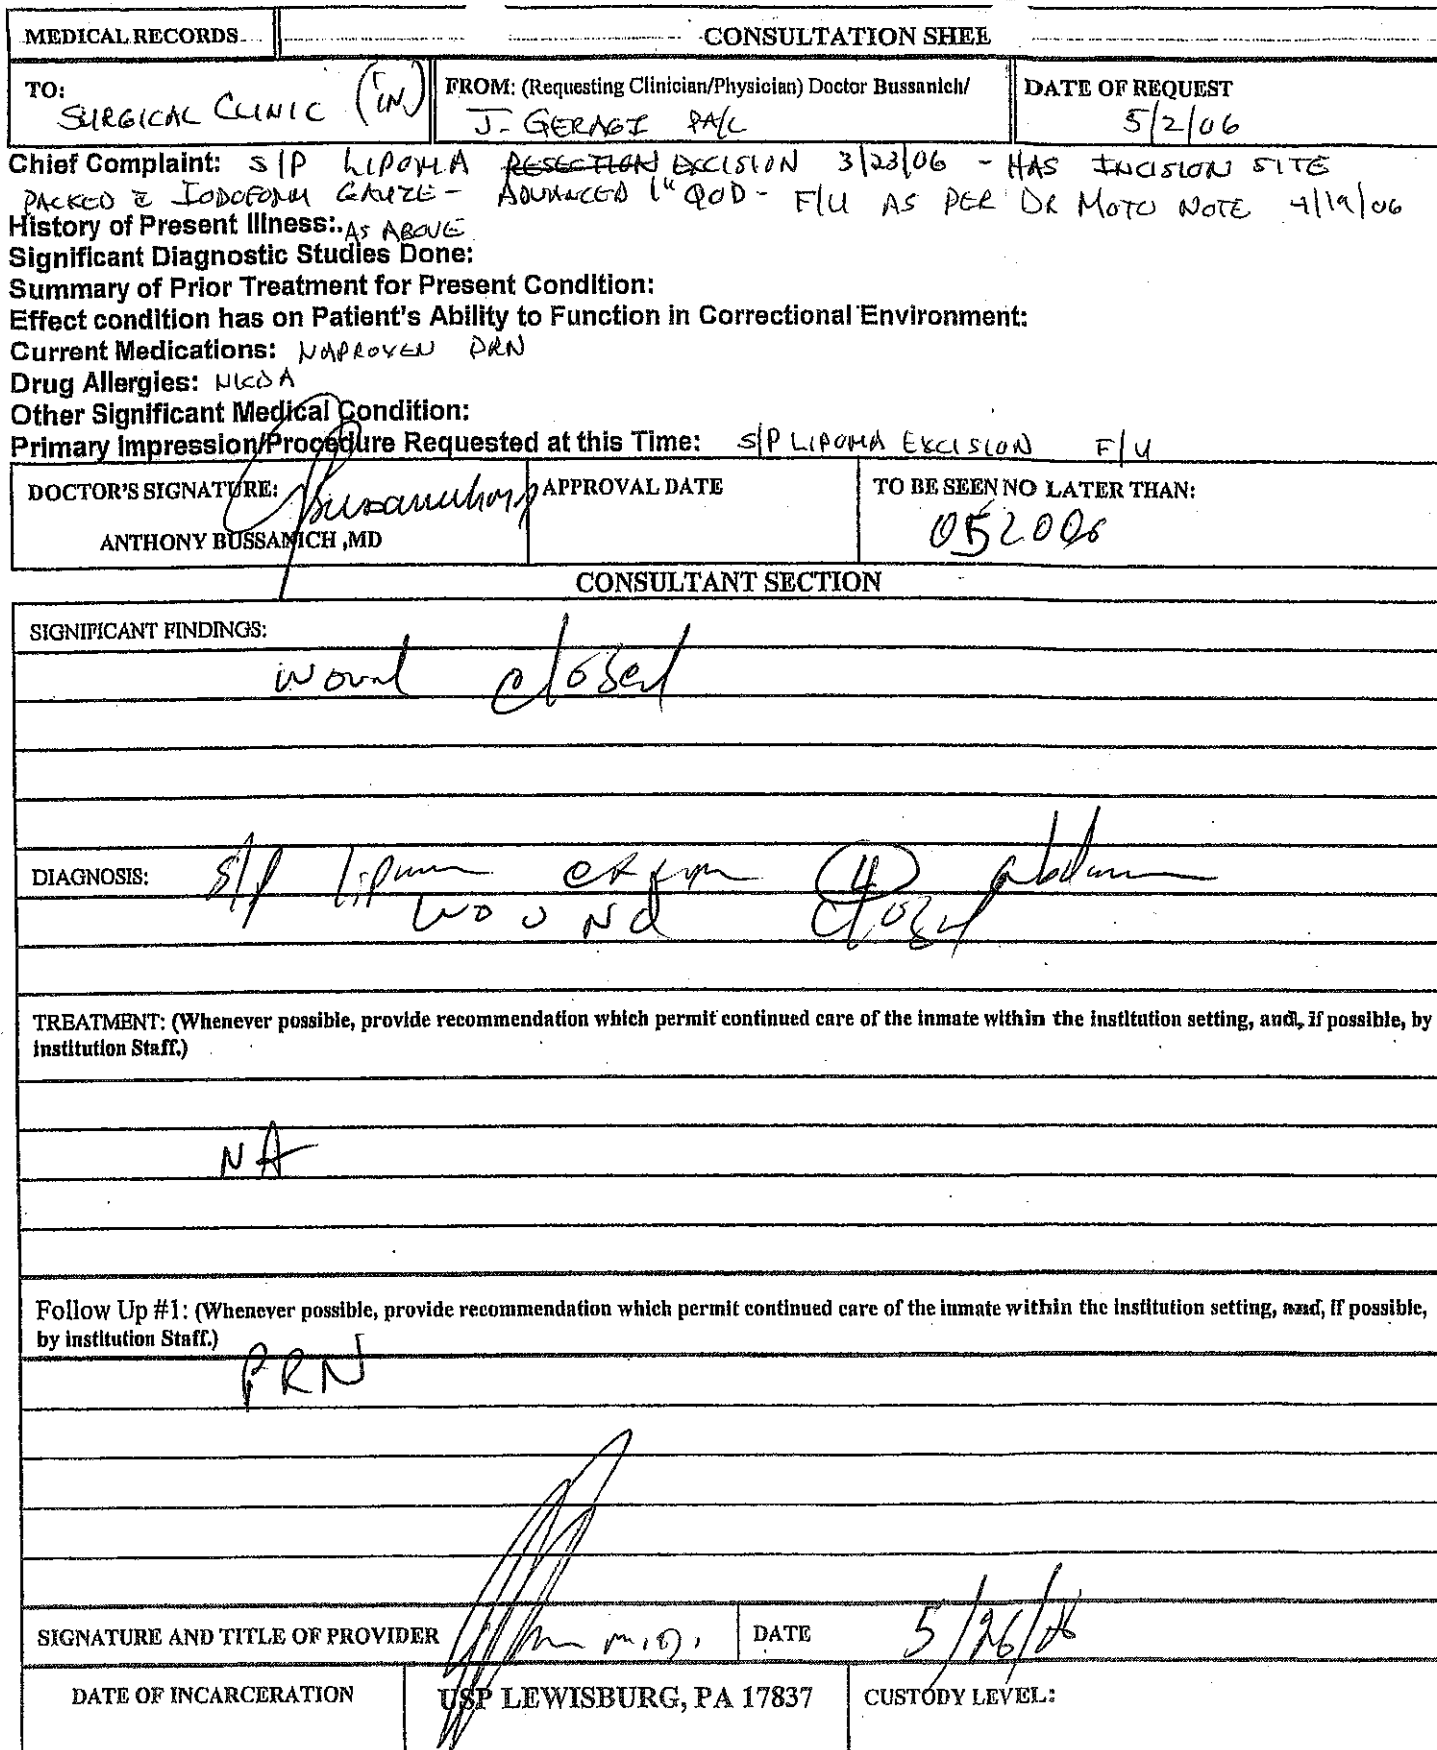 MEDICAL RECORDS
CONSULTATION SHEE
TO:
SURGICAL CLINIC (IN)
FROM: (Requesting Clinician/Physician) Doctor Bussanich/
J. GERAGI PA/C
DATE OF REQUEST
5/2/06
Chief Complaint: S/P LIPOMA RESECTION EXCISION 3/23/06 - HAS INCISION SITE
PACKED c̄ IODOFORM GAUZE - ADVANCED 1" QOD - F/U AS PER DR MOTO NOTE 4/19/06
History of Present Illness: AS ABOVE
Significant Diagnostic Studies Done:
Summary of Prior Treatment for Present Condition:
Effect condition has on Patient's Ability to Function in Correctional Environment:
Current Medications: NAPROXEN PRN
Drug Allergies: NKDA
Other Significant Medical Condition:
Primary Impression/Procedure Requested at this Time: S/P LIPOMA EXCISION F/U
DOCTOR'S SIGNATURE:
ANTHONY BUSSANICH ,MD
APPROVAL DATE
TO BE SEEN NO LATER THAN:
052006
CONSULTANT SECTION
SIGNIFICANT FINDINGS:
wound closed
DIAGNOSIS: S/P lipoma abdomen
wound closed
TREATMENT: (Whenever possible, provide recommendation which permit continued care of the inmate within the institution setting, and, if possible, by
institution Staff.)
NA
Follow Up #1: (Whenever possible, provide recommendation which permit continued care of the inmate within the institution setting, and, if possible,
by institution Staff.)
PRN
SIGNATURE AND TITLE OF PROVIDER M.D.
DATE
5/26/06
DATE OF INCARCERATION
USP LEWISBURG, PA 17837
CUSTODY LEVEL: